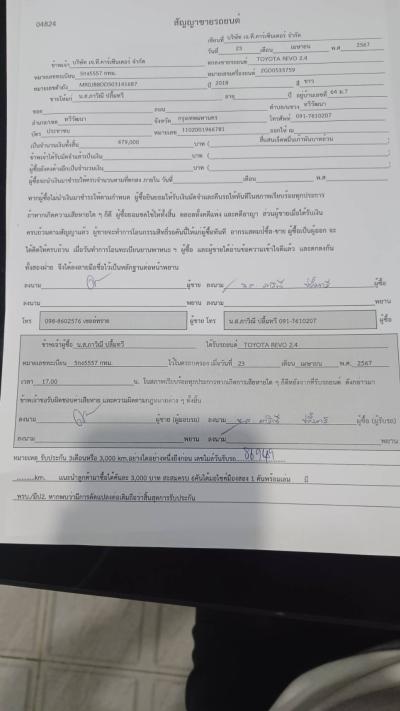 04824
สัญญาขายรถยนต์
เขียนที่ บริษัท เจ.ที.คาร์เซ็นเตอร์ จำกัด
วันที่ 23 เดือน เมษายน พ.ศ 2567
ข้าพเจ้า บริษัท เจ.ที.คาร์เซ็นเตอร์ จำกัด ตกลงขายรถยนต์ TOYOTA REVO 2.4
หมายเลขทะเบียน 5กง5557 กทม. หมายเลขเครื่องยนต์
หมายเลขตัวถัง ปี 2018 สี ขาว
ขายให้แก่ น.ส.ภาวิณี ปลื้มทวี อายุ ปี อยู่บ้านเลขที่ 64 ม.7
ซอย ถนน ตำบล/แขวง ทวีวัฒนา
อำเภอ/เขต ทวีวัฒนา จังหวัด กรุงเทพมหานคร โทรศัพท์ 091-7610207
บัตร ประชาชน หมายเลข 1102001966781 ออกให้ ณ
เป็นจำนวนเงินทั้งสิ้น 479,000 บาท ( สี่แสนเจ็ดหมื่นเก้าพันบาทถ้วน )
ข้าพเจ้าได้รับมัดจำแล้วเป็นเงิน บาท ( )
ผู้ซื้อยังคงค้างอีกเป็นจำนวนเงิน บาท ( )
ผู้ซื้อจะนำเงินมาชำระให้ครบจำนวนตามที่ตกลง ภายใน วันที่ เดือน พ.ศ
หากผู้ซื้อไม่นำเงินมาชำระให้ตามกำหนด ผู้ซื้อยินยอมให้ริบเงินมัดจำและคืนรถให้ทันทีในสภาพเรียบร้อยทุกประการ
ถ้าหากเกิดความเสียหายใด ๆ ก็ดี ผู้ซื้อยอมชดใช้ให้ทั้งสิ้น ตลอดทั้งคดีแพ่ง และคดีอาญา ส่วนผู้ขายเมื่อได้รับเงิน
ครบถ้วนตามสัญญาแล้ว ผู้ขายจะทำการโอนกรรมสิทธิ์รถคันนี้ให้แก่ผู้ซื้อทันที อากรแสตมป์ซื้อ-ขาย ผู้ซื้อเป็นผู้ออก จะ
ได้คิดให้ครบถ้วน เมื่อวันทำการโอนทะเบียนยานพาหนะ ฯ ผู้ซื้อ และผู้ขายได้อ่านข้อความเข้าใจดีแล้ว และตกลงกัน
ทั้งสองฝ่าย จึงได้ลงลายมือชื่อไว้เป็นหลักฐานต่อหน้าพยาน
ลงนาม ผู้ขาย ลงนาม ผู้ซื้อ
ลงนาม พยาน ลงนาม พยาน
โทร 098-8602576 เซลล์ทราย ผู้ขาย โทร น.ส.ภาวิณี ปลื้มทวี 091-7610207 ผู้ซื้อ
ข้าพเจ้าผู้ซื้อ น.ส.ภาวิณี ปลื้มทวี ได้รับรถยนต์ TOYOTA REVO 2.4
หมายเลขทะเบียน 5กง5557 กทม. ไว้ในครอบครอง เมื่อวันที่ 23 เดือน เมษายน พ.ศ. 2567
เวลา 17.00 น. ในสภาพเรียบร้อยทุกประการหากเกิดการเสียหายใด ๆ ก็ดีหลังจากที่รับรถยนต์ ดังกล่าวมา
ข้าพเจ้าขอรับผิดชอบค่าเสียหาย และความผิดตามกฎหมายต่าง ๆ ทั้งสิ้น
ลงนาม ผู้ขาย (ผู้มอบรถ) ลงนาม ผู้ซื้อ (ผู้รับรถ)
ลงนาม พยาน ลงนาม พยาน
หมายเหตุ รับประกัน 3เดือนหรือ 3,000 km.อย่างใดอย่างหนึ่งถึงก่อน เลขไมล์วันรับรถ 86949
km. แนะนำลูกค้ามาซื้อได้คันละ 3,000 บาท สะสมครบ 6คันได้มอไซค์มือสอง 1 คันพร้อมเล่ม มี
พรบ./มีป2. หากพบว่ามีการดัดแปลงต่อเติมถือว่าสิ้นสุดการรับประกัน